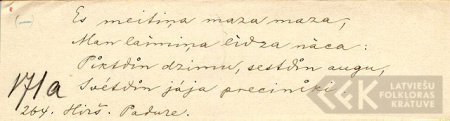 Es meitiņa maza maza,
Man laimiņa līdza nāca:
Piktdin dzimu, sestdin augu,
Svētdin jāja preciniki.
171a
264. Hirš. Padure.
LATVIEŠU
FOLKLORAS
KRĀTUVE